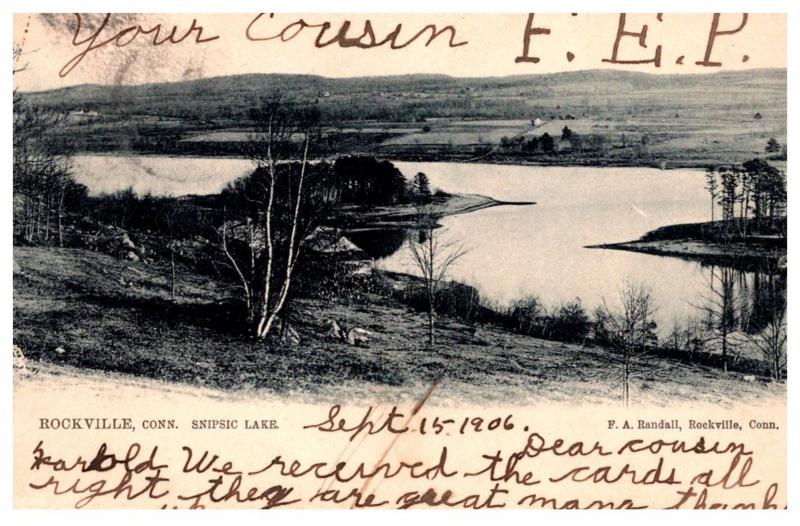 Your Cousin F. E. P.
ROCKVILLE, CONN. SNIPSIC LAKE.
Sept 15-1906.
F. A. Randall, Rockville, Conn.
Dear cousin
Harold We received the cards all
right they are great many thank